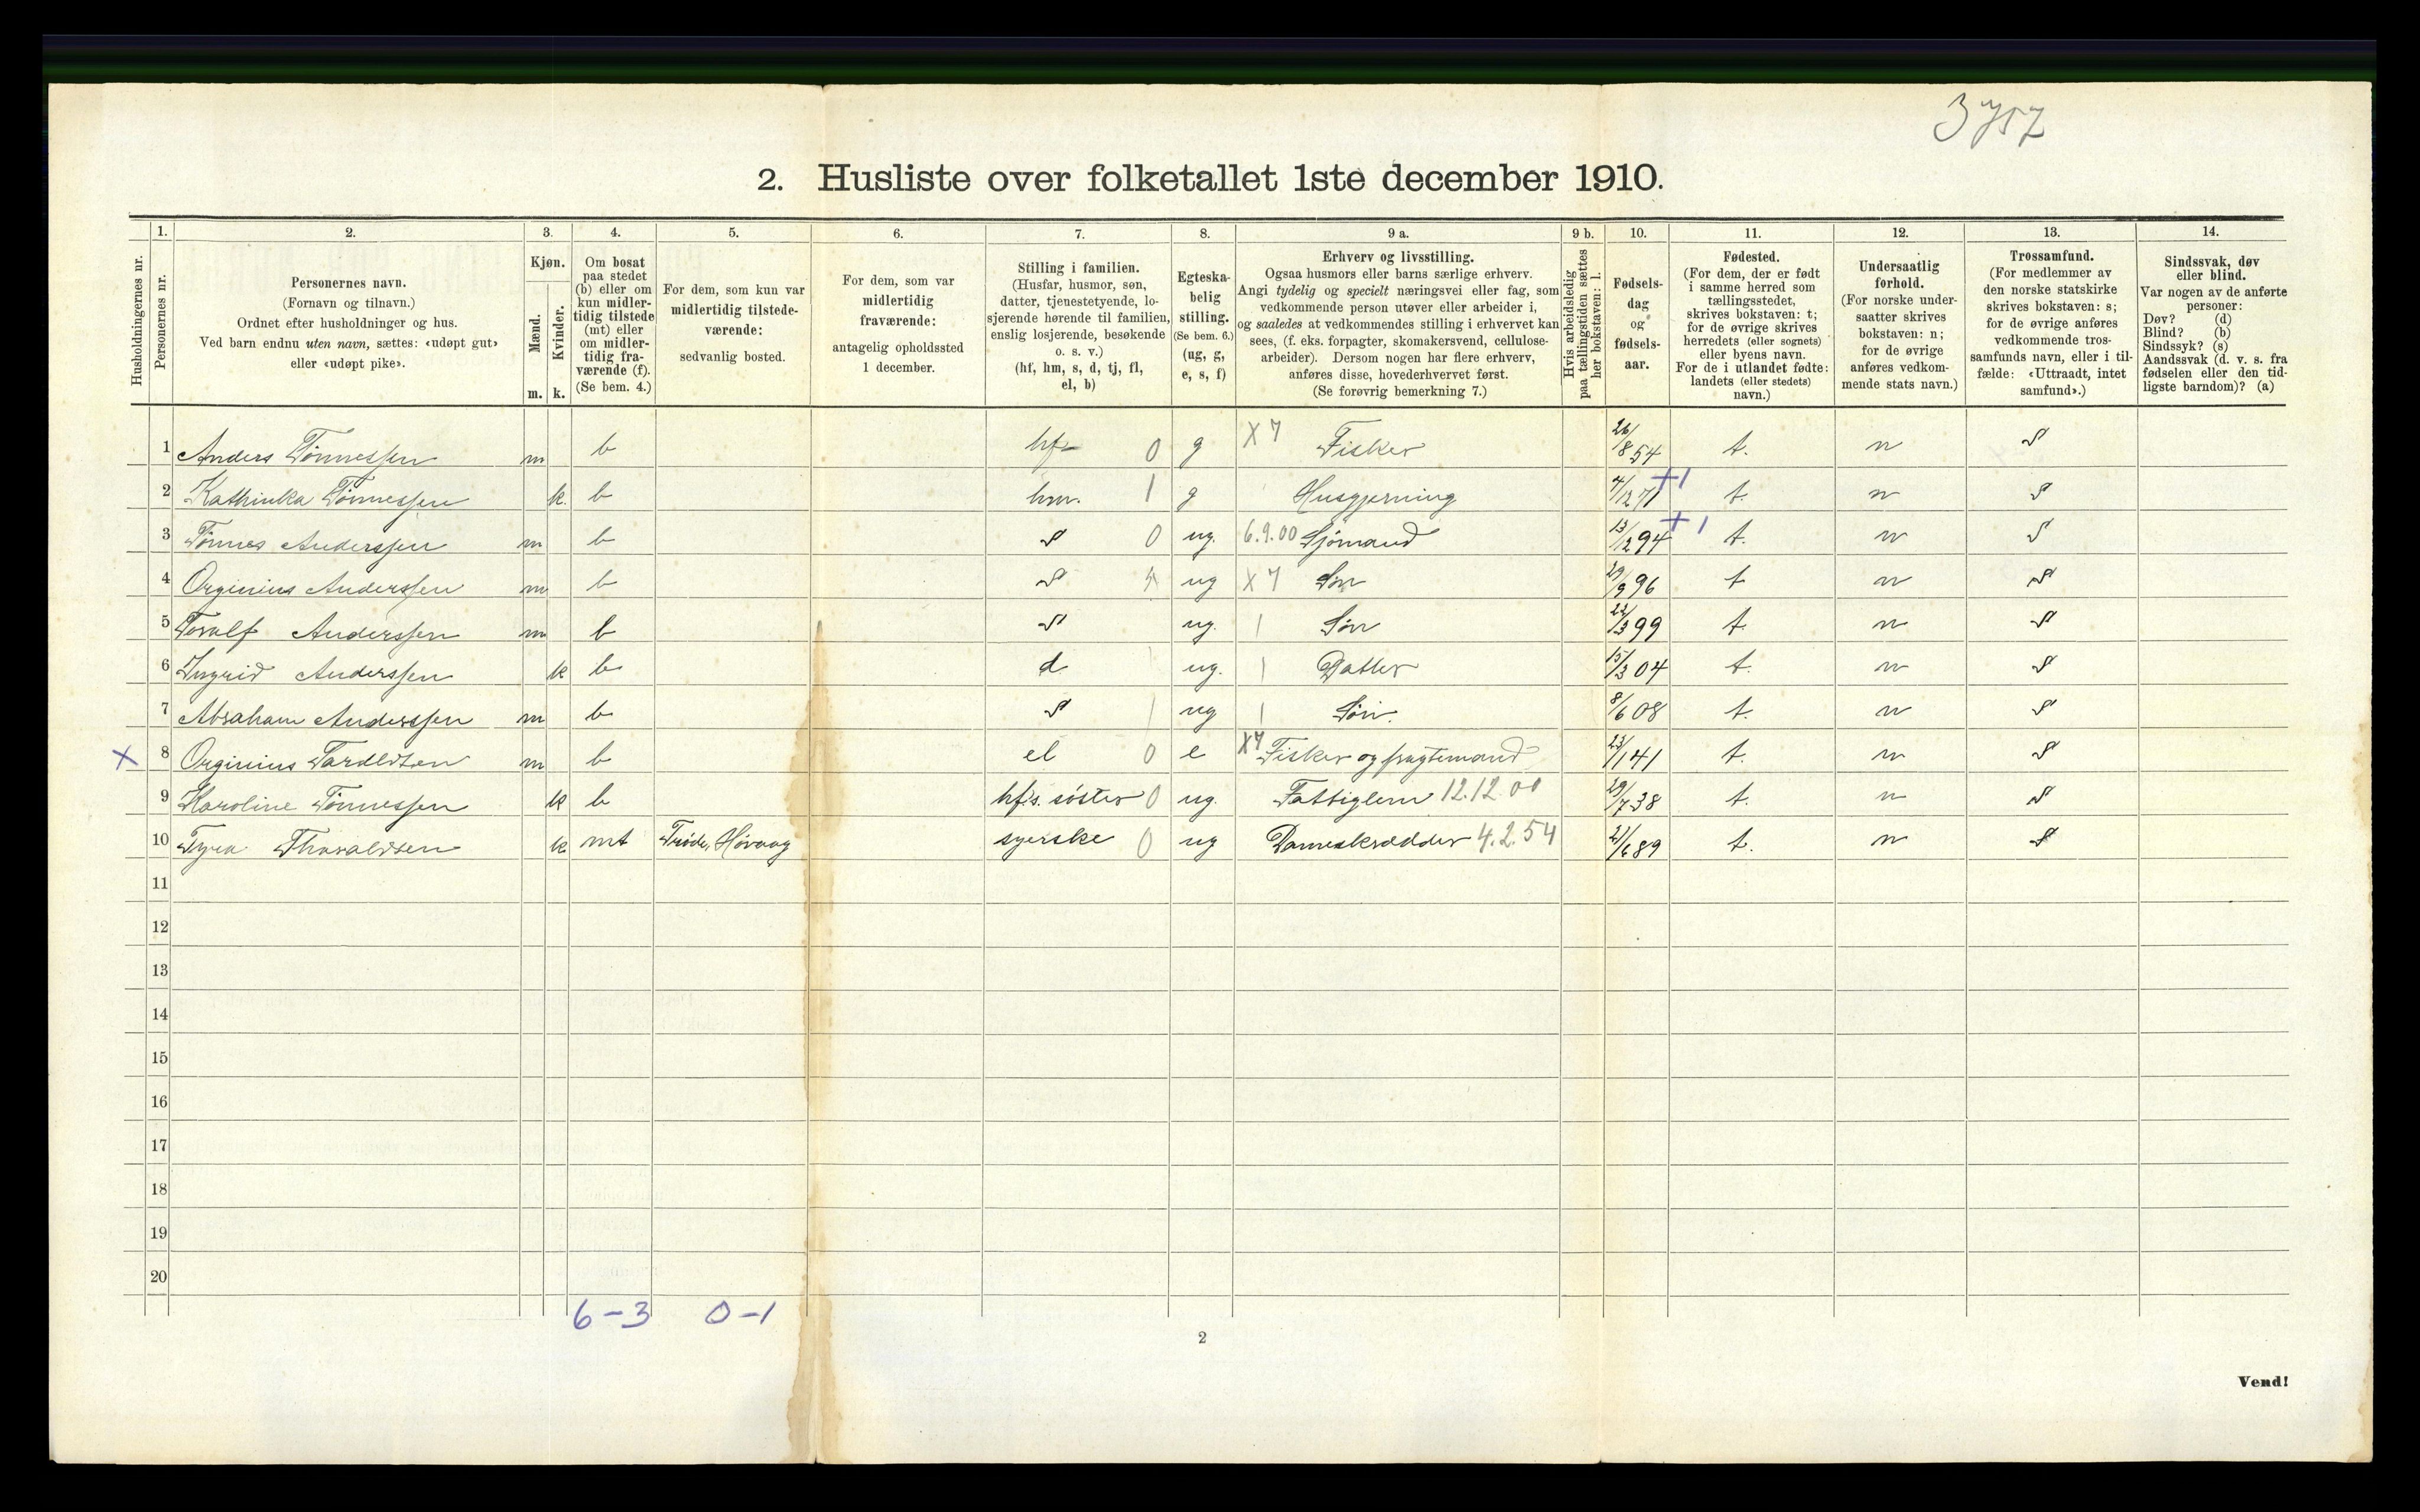 3757
2. Husliste over folketallet 1ste december 1910.
1. 2. 3. 4. 5. 6. 7. 8. 9 a. 9 b. 10. 11. 12. 13. 14.
Husholdningernes nr.
Personernes nr.
Personernes navn.
(Fornavn og tilnavn.)
Ordnet efter husholdninger og hus.
Ved barn endnu uten navn, sættes: «udøpt gut»
eller «udøpt pike».
Kjøn.
Mænd.
Kvinder.
m. k.
Om bosat
paa stedet
(b) eller om
kun midler-
tidig tilstede
(mt) eller
om midler-
tidig fra-
værende (f).
(Se bem. 4.)
For dem, som kun var
midlertidig tilstede-
værende:
sedvanlig bosted.
For dem, som var
midlertidig
fraværende:
antagelig opholdssted
1 december.
Stilling i familien.
(Husfar, husmor, søn,
datter, tjenestetyende, lo-
sjerende hørende til familien,
enslig losjerende, besøkende
o. s. v.)
(hf, hm, s, d, tj, fl,
el, b)
Egteska-
belig
stilling.
(Se bem. 6.)
(ug, g,
e, s, f)
Erhverv og livsstilling.
Ogsaa husmors eller barns særlige erhverv.
Angi tydelig og specielt næringsvei eller fag, som
vedkommende person utøver eller arbeider i,
og saaledes at vedkommendes stilling i erhvervet kan
sees, (f. eks. forpagter, skomakersvend, cellulose-
arbeider). Dersom nogen har flere erhverv,
anføres disse, hovederhvervet først.
(Se forøvrig bemerkning 7.)
Hvis arbeidsledig
paa tællingstiden sættes
her bokstaven: l.
Fødsels-
dag
og
fødsels-
aar.
Fødested.
(For dem, der er født
i samme herred som
tællingsstedet,
skrives bokstaven: t;
for de øvrige skrives
herredets (eller sognets)
eller byens navn.
For de i utlandet fødte:
landets (eller stedets)
navn.)
Undersaatlig
forhold.
(For norske under-
saatter skrives
bokstaven: n;
for de øvrige
anføres vedkom-
mende stats navn.)
Trossamfund.
(For medlemmer av
den norske statskirke
skrives bokstaven: s;
for de øvrige anføres
vedkommende tros-
samfunds navn, eller i til-
fælde: «Uttraadt, intet
samfund».)
Sindssvak, døv
eller blind.
Var nogen av de anførte
personer:
Døv? (d)
Blind? (b)
Sindssyk? (s)
Aandssvak (d. v. s. fra
fødselen eller den tid-
ligste barndom)? (a)
1 Anders Tønnessen m b hf 0 g X 7 Fisker 26/8 54 t. n s
2 Kathinka Tønnessen k. b hm. 1 g Husgjerning 4/12 71 +1 t. n s
3 Tønnes Anderssen m b s 0 ug. 6.9.00 Sjømand 13/12 94 +1 t. n s
4 Orginius Anderssen m b s ug X 7 Søn 29/9 96 t n s
5 Toralf Anderssen m b s ug. 1 Søn 22/3 99 t. n s
6 Ingrid Anderssen k b d 1 ug. 1 Datter 15/3 04 t. n s
7 Abraham Anderssen m b s 1 ug 1 Søn. 8/6 08 t. n s
X 8 Orginius m b el 0 e X7 Fisker og 23/1 41 t. n s
9 Karoline Tønnessen k b hf's. søster 0 ug. Fattiglem 12.12.00 29/7 38 t. n s
10 Tyra Thoraldsen k mt Trøde, Høvaag syerske 0 ug Dameskrædder 4.2.54 21/6 89 t. n s
11
12
13
14
15
16
17
18
19
20
6-3 0-1
2
Vend!